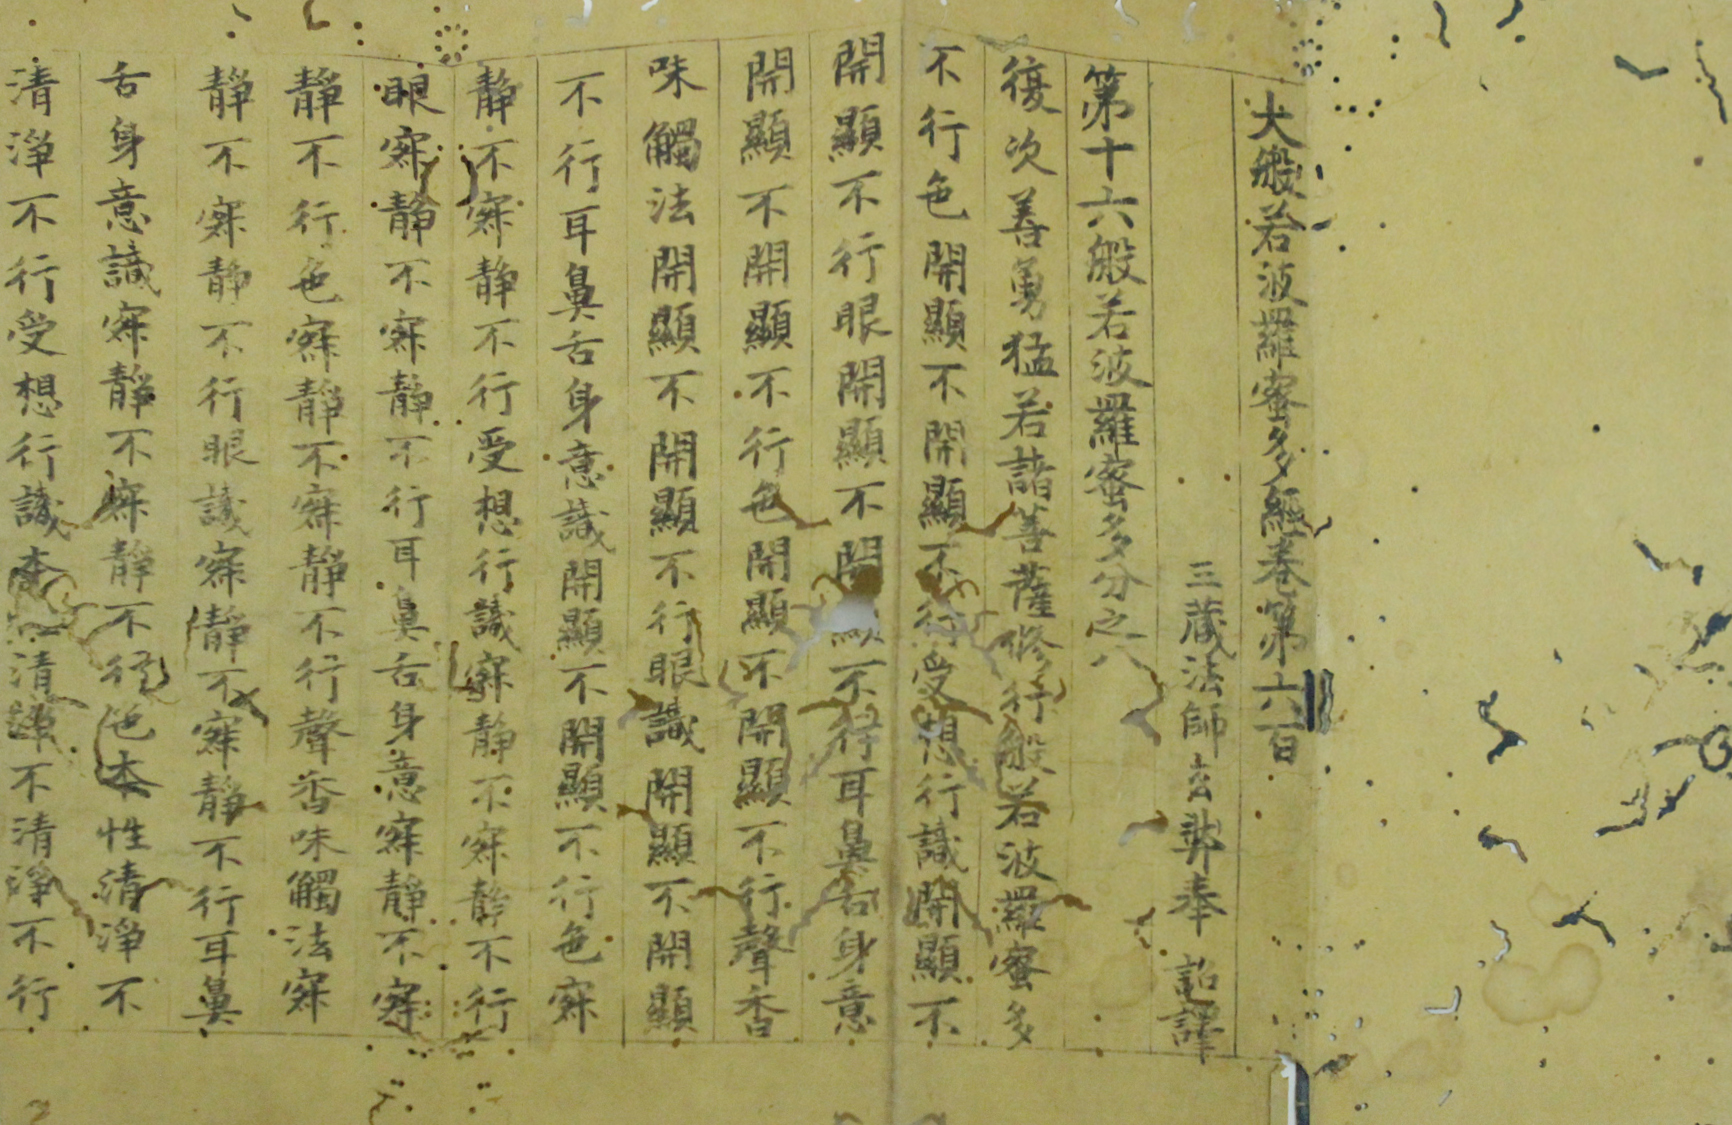 大般若波羅蜜多經卷第六百
三藏法師玄奘奉 詔譯
第十六般若波羅蜜多分之八
復次善勇猛若諸菩薩修行般若波羅蜜多
不行色開顯不開顯不行受想行識開顯不
開顯不行眼開顯不開顯不行耳鼻舌身意
開顯不開顯不行色開顯不開顯不行聲香
味觸法開顯不開顯不行眼識開顯不開顯
不行耳鼻舌身意識開顯不開顯不行色寂
靜不寂靜不行受想行識寂靜不寂靜不行
眼寂靜不寂靜不行耳鼻舌身意寂靜不寂
靜不行色寂靜不寂靜不行聲香味觸法寂
靜不寂靜不行眼識寂靜不寂靜不行耳鼻
舌身意識寂靜不寂靜不行色本性清淨不
清淨不行受想行識本清淨不清淨不行